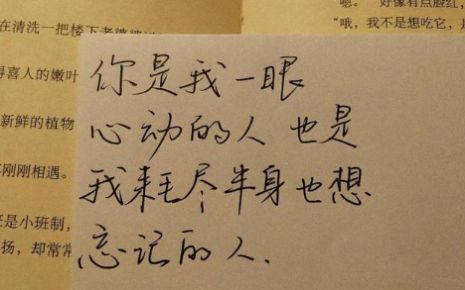 在清洗一把楼下老婆婆
得喜人的嫩叶
新鲜的植物
刚刚相遇。
是小班制，
扬，却常常
嗯。 好像有点脸红，
"哦，我不是想吃它，是
你是我一眼
心动的人 也是
我耗尽半身也想
忘记的人.